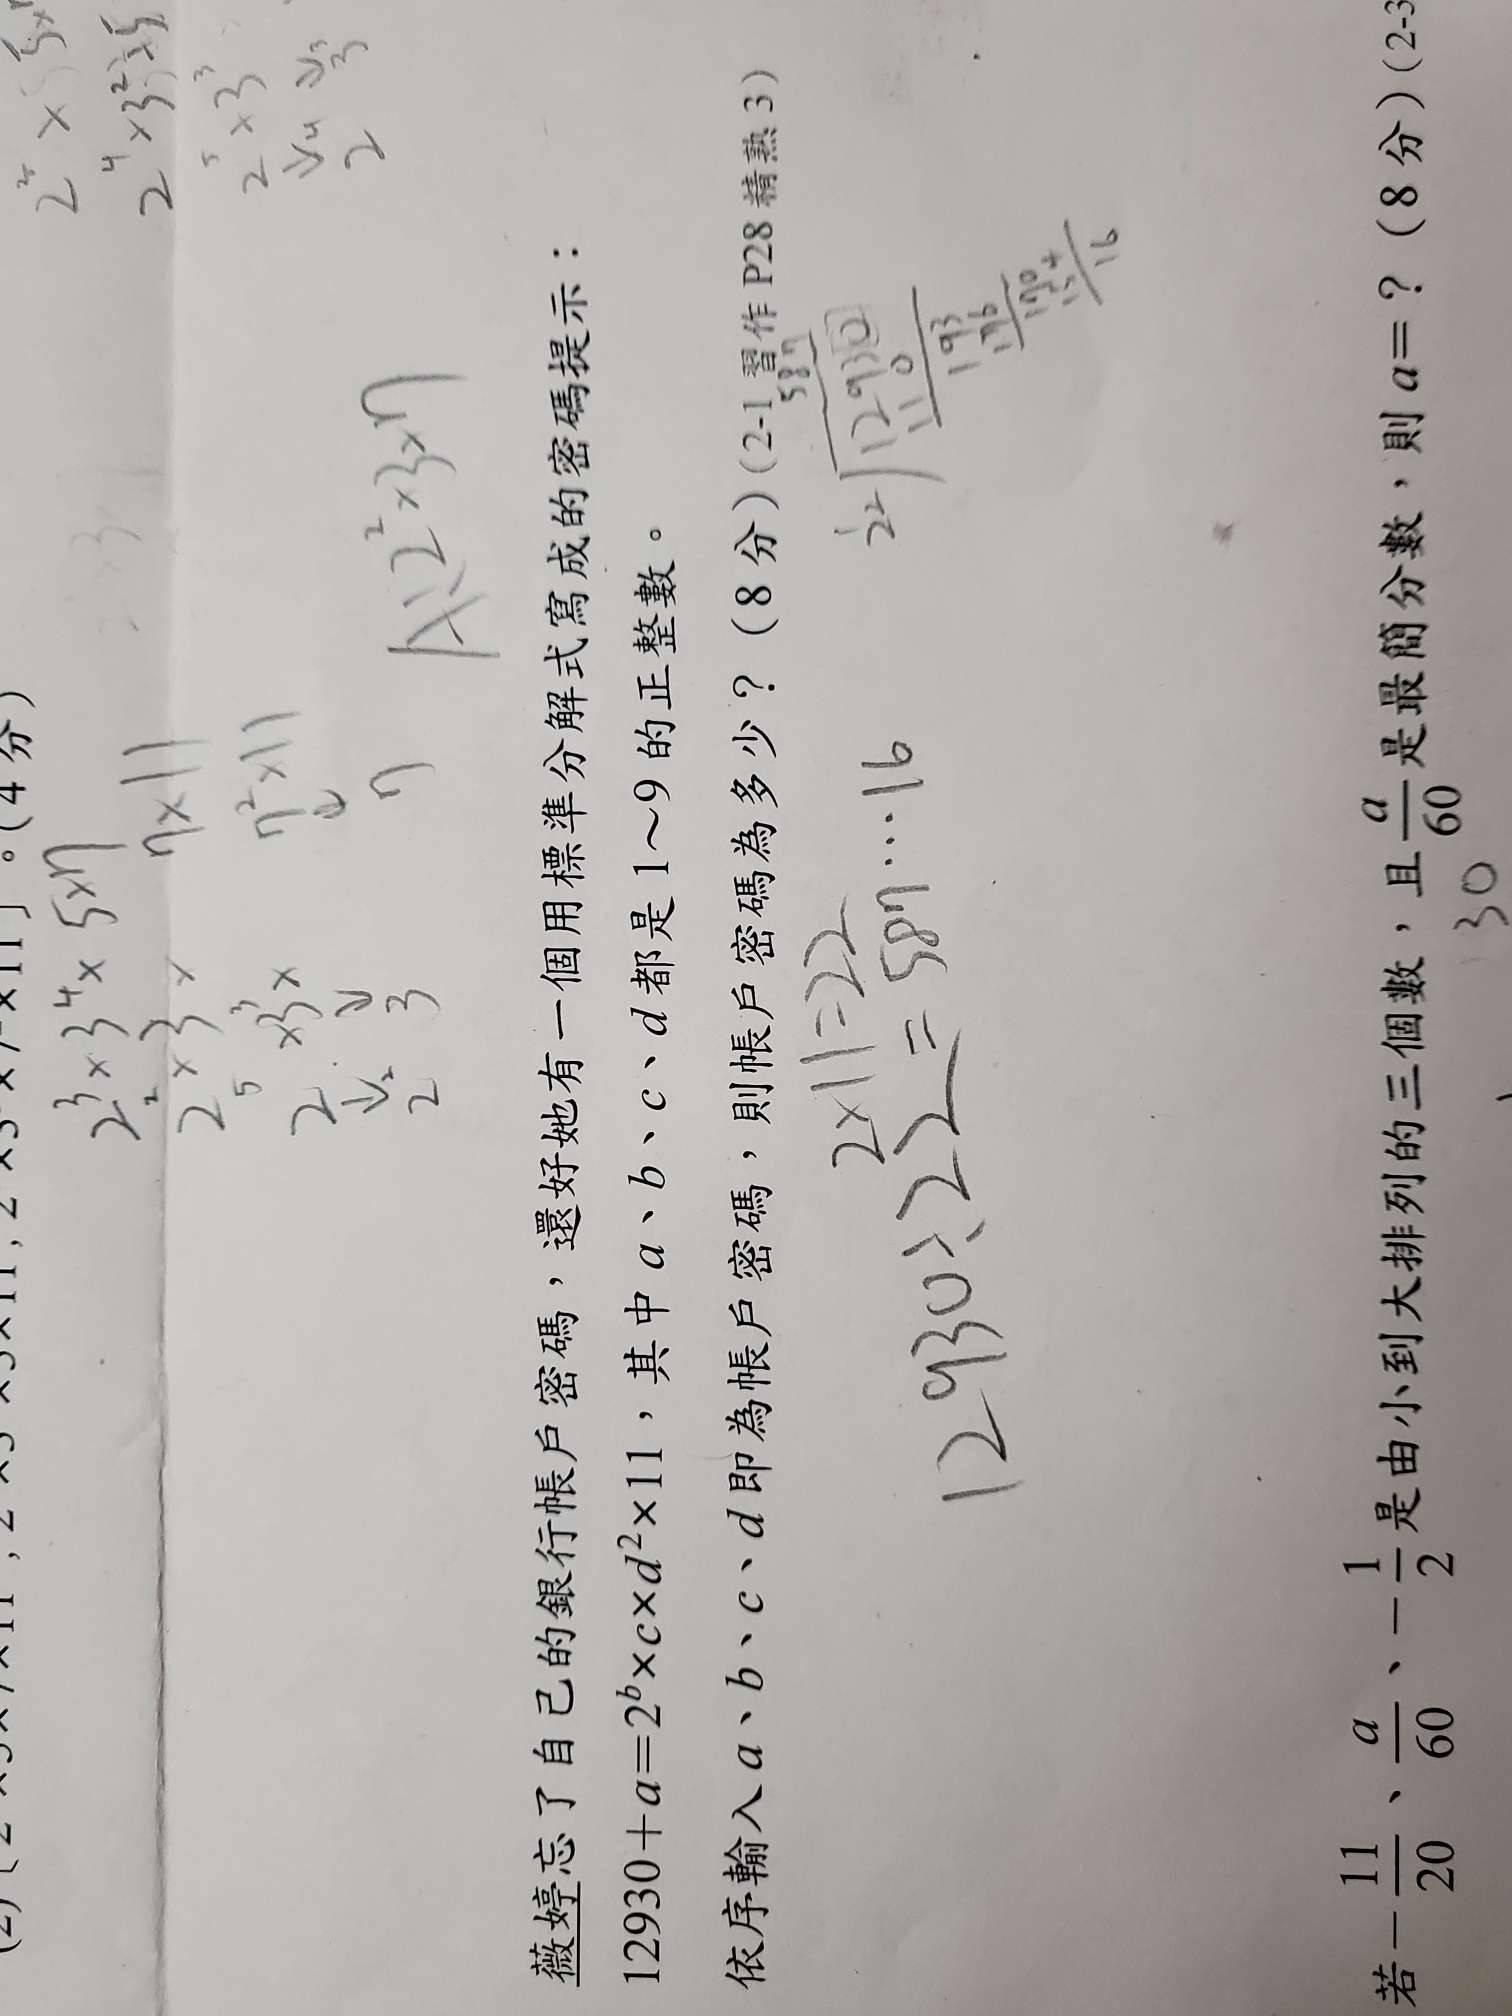 。(4分)
2³×3⁴×5×7
2²×3×7×11
2⁵×3³×7²×11
2² 3 7
2⁴×3²×5
2⁵×3³
2⁴ 3³
A:2²×3×7
薇婷忘了自己的銀行帳戶密碼，還好她有一個用標準分解式寫成的密碼提示：
12930＋a＝2ᵇ×c×d²×11，其中 a、b、c、d 都是 1～9 的正整數。
依序輸入 a、b、c、d 即為帳戶密碼，則帳戶密碼為多少？(8分)(2-1 習作 P28 精熟 3)
2×11=22
12930÷22=587…16
587
22 12930
110
193
176
170
154
16
若－11/20、a/60、－1/2 是由小到大排列的三個數，且 a/60 是最簡分數，則 a＝？(8分)(2-3
30